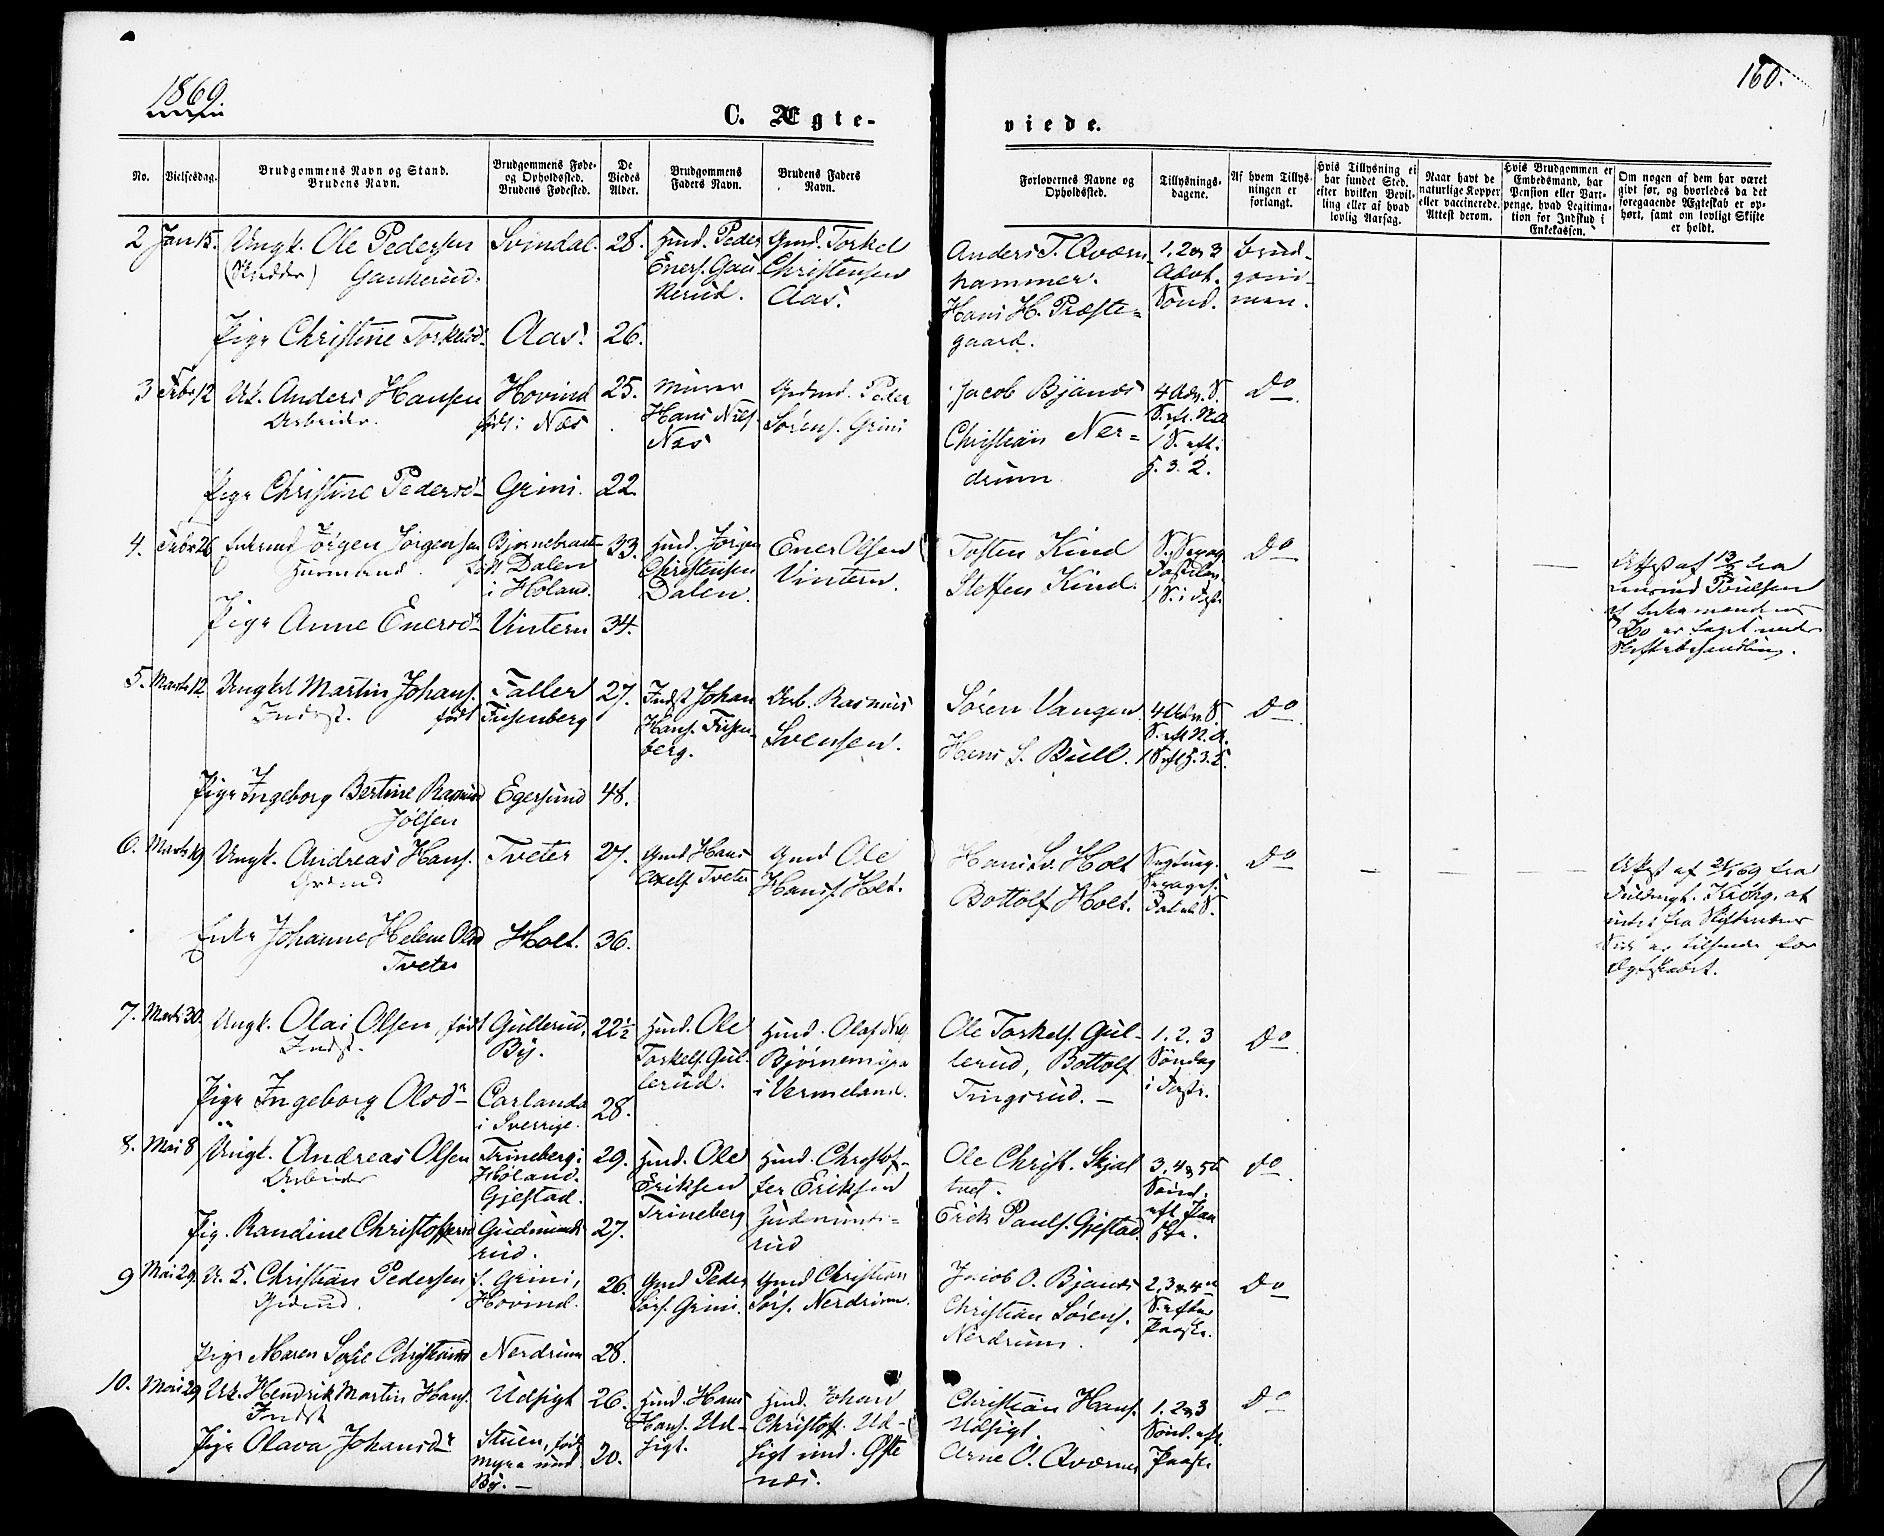 1869
160.
C. Ægte-
viede.
No.
Vielsesdag.
Brudgommens Navn og Stand.
Brudens Navn.
Brudgommens Føde-
og Opholdssted.
Brudens Fødested.
De
Viedes
Alder.
Brudgommens
Faders Navn.
Brudens Faders
Navn.
Forlovernes Navne og
Opholdssted.
Tillysnings-
dagene.
Af hvem Tillys-
ningen er
forlangt.
Hvis Tillysning ei
har fundet Sted,
efter hvilken Bevil-
ling eller af hvad
lovlig Aarsag.
Naar havt de
naturlige Kopper
eller vaccinerede.
Attest derom.
Hvis Brudgommen er
Embedsmand, har
Pension eller Vart-
penge, hvad Legitima-
tion for Indskud i
Enkekassen.
Om nogen af dem har været
givt før, og hvorledes da det
foregaaende Ægteskab er op-
hørt, samt om lovligt Skifte
er holdt.
2 Jan 15. Ungk. Ole Pedersen
Gaukerud.
Svindal 28.
Hmd. Peder
Eners. Gau-
kerud.
Gmd. Torkel
Christensen
Aas.
Anders T. Qværn-
hammer.
Hans H. Præste-
gaard.
1. 2 & 3
Advt.
Sønd.
Brud-
gom-
men.
Pige Christine Torkelsd. Aas. 26.
3 Febr 12 Uk. Anders Hansen
Arbeider.
Hovind
født i Næs
25.
Murer
Hans Niels.
Næs
Gdmd. Peder
Sørens. Grini
Jacob Bjanæs
Christian Ner-
drum
4 Adv. S.
S. eft. N.A.
1 S. eft.
H. 3. K.
Do
Pige Christine Pedersd. Grini. 22
4. Febr 26 Enkemd Jørgen Jørgensen
Husmand.
Dalen
i Høland.
33.
Hmd. Jørgen
Christensen
Dalen.
Ener Olsen
Vintern.
Tosten Kind
Steffen Kind.
Do
Pige Anne Enersd. Vintern 34.
5. Marts 12 Ungkl Martin Johans.
Indst. født
Taller
Fusenberg
27.
Indst Johan
Hans. Fusen-
berg.
Arb. Rasmus
Svensen.
Søren Vangen
Hans S. Bull.
4 Adv. S.
S. eft N.A.
Do
Pige Ingeborg Bertine Rasmusd
Jølsen
Egersund 48.
6. Marts 19 Ungk. Andreas Hans.
Grdmd
Tveter 27.
Gmd Hans
Axels Tveter
Gmd Ole
Hans. Holt.
Hans Sv. Holt
Bottolf Holt.
Do
Attest af
fra
Enke Johanne Helene Olsd
Tveter
Holt. 36.
7. Marts 30. Ungk. Olai Olsen, født
Indst.
Gullerud,
By.
22½
Hmd. Ole
Torkels. Gul-
lerud.
Hmd. Olaf Niels
Bjørnemyra
i Vermeland.
Ole Torkels. Gul-
lerud, Bottolf
Tingsrud.
1. 2. 3
Søndag
i Faste.
Do
Pige Ingeborg Olsd. Carlanda
i Sverrige.
28.
8. Mai 8 Ungk. Andreas Olsen
Arbeider
Trineberg i
Høland.
Gjestad.
29.
Hmd. Ole
Eriksen
Trineberg
Hmd. Christof-
fer Eriksen
Gudmunds-
rud
Ole Christ. Skjal
tvet.
Erik Pauls. Gjestad.
3. 4 & 5te
Sønd.
eft Paa
ske.
Do
Pig. Randine Christoffersd Gudmunds
rud.
27.
9 Mai 29. U. K. Christian Pedersen
Gdmd.
f. Grini,
Hovind.
26.
Gmd Peder
Sørs. Grini.
Gmd Christian
Sørs. Nerdrum.
Jacob O. Bjanæs
Christian Sørens.
Nerdrum.
2. 3 & 4de
S. efter
Paaske.
Do
Pige Maren Sofie Christiansd Nerdrum 28.
10. Mai 29 Uk. Hendrik Martin Hans.
Indst
Udsigt 26.
Hmd. Hans
Hans. Ud-
sigt.
Hmd. Johan
Christoff. Ud-
sigt und. Øfte
næs.
Christian Hans.
Udsigt.
Arne O. Qværnes
1. 2 & 3
Sønd. eft.
Paaske
Do
Pige Olava Johansd. Stuen, født
Myra und.
By.
20.